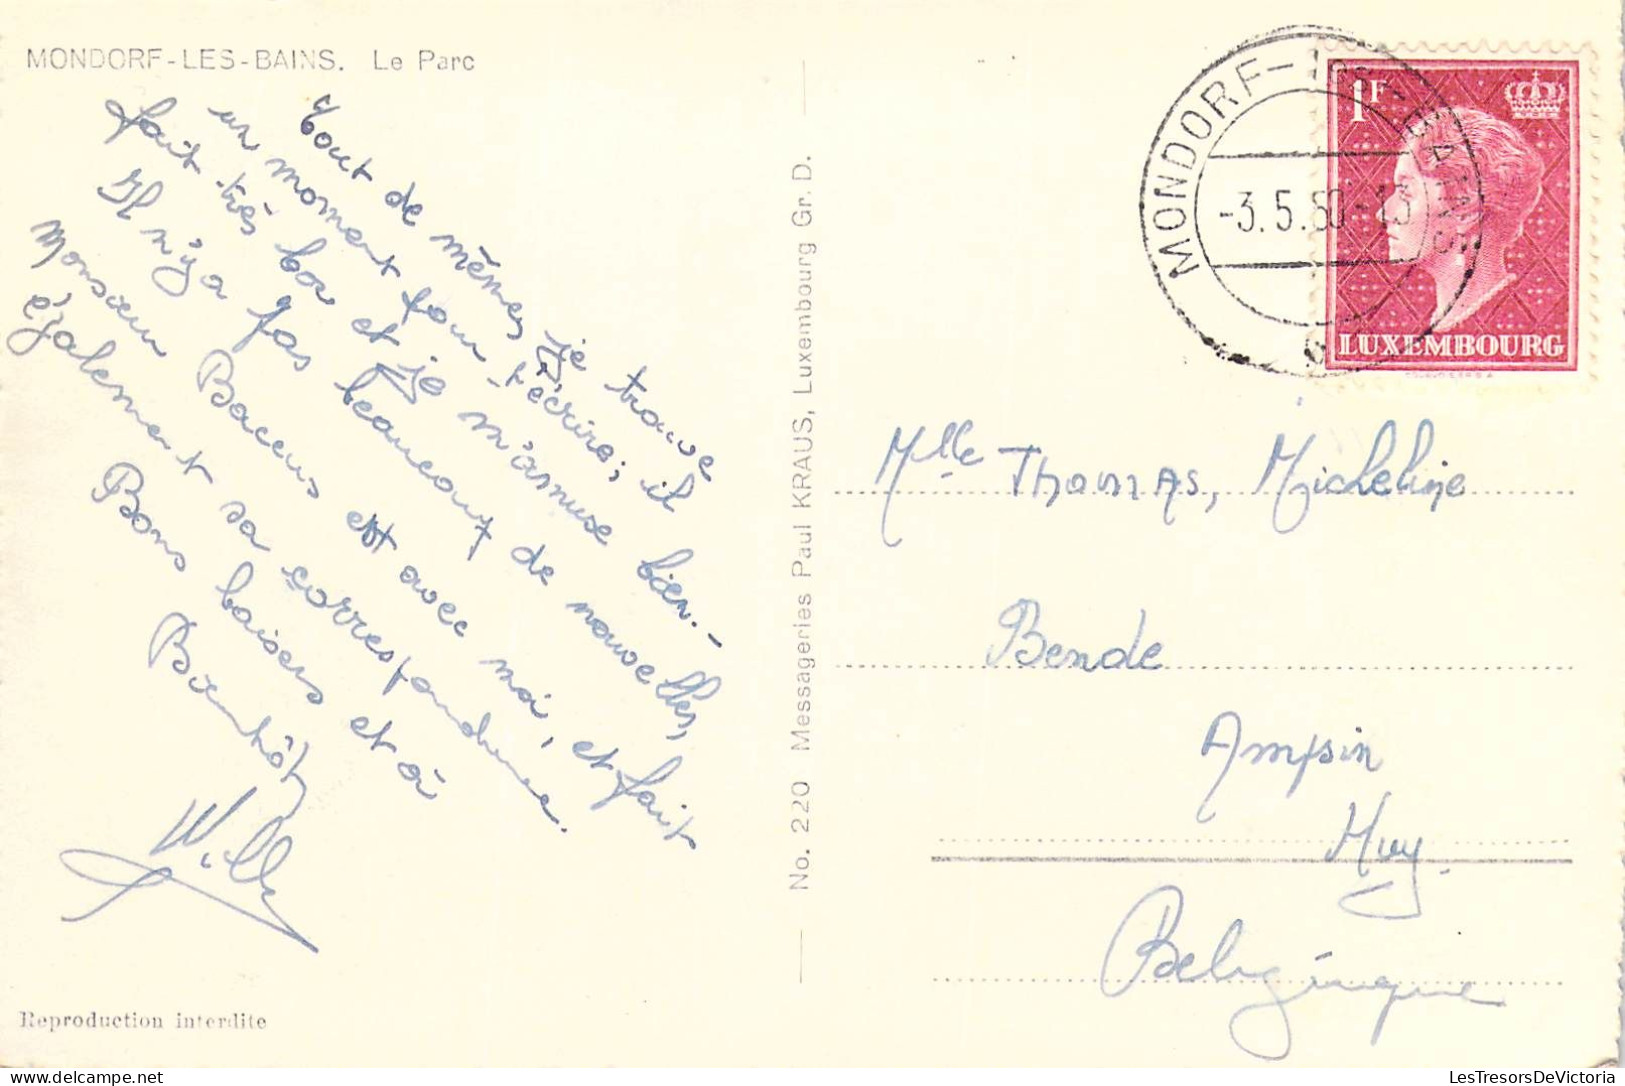 MONDORF-LES-BAINS. Le Parc
Tout de mêmes je trouve
un moment pour t'écrire; il
fait très bon et je m'amuse bien.-
Il n'y a pas beaucoup de nouvelles,
Monsieur Baccus est avec moi, et fait
également sa correspondance.
Bons baisers et à
Bientôt
Willy
Reproduction interdite
No. 220 Messageries Paul KRAUS, Luxembourg Gr. D.
MONDORF-les-BAINS
-3.5.60-13
1F
LUXEMBOURG
Mlle Thomas, Micheline
Bende
Ampsin
Huy
Belgique
LesTresorsDeVictoria